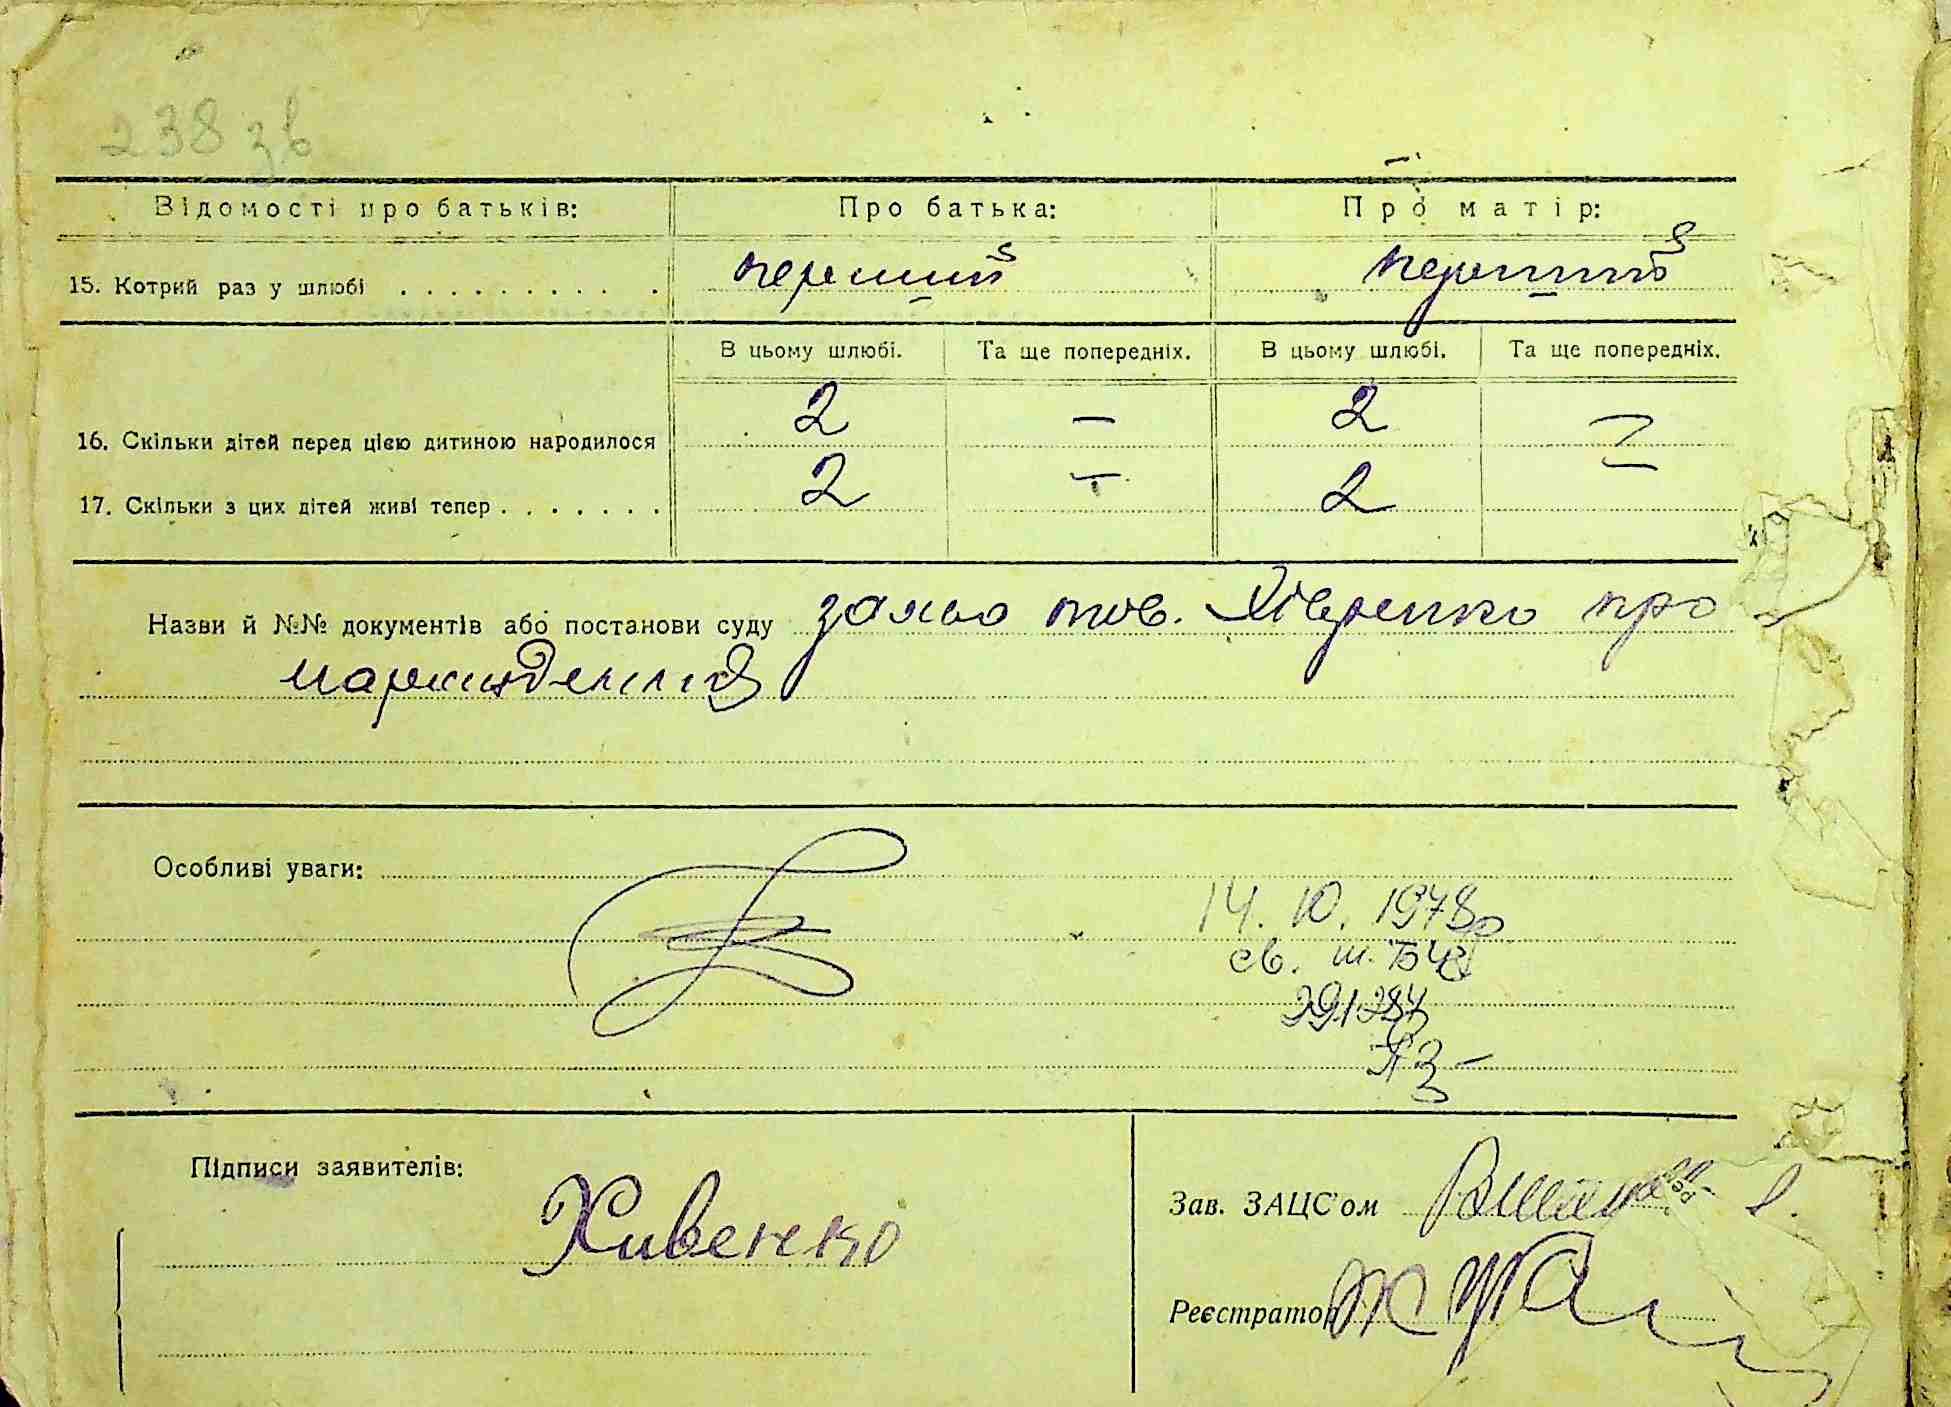 238 зв
Відомості про батьків: Про батька: Про матір:
15. Котрий раз у шлюбі . . . . . . . . . . перший перший
В цьому шлюбі. Та ще попередніх. В цьому шлюбі. Та ще попередніх.
16. Скільки дітей перед цією дитиною народилося 2 — 2 —
17. Скільки з цих дітей живі тепер . . . . . . . 2 — 2 —
Назви й №№ документів або постанови суду заява тов. про
народження
Особливі уваги:
14. 10. 1978р
св. ш. БЧ
291284
Підписи заявителів:
Хивенко
Зав. ЗАЦС'ом
Реєстратор